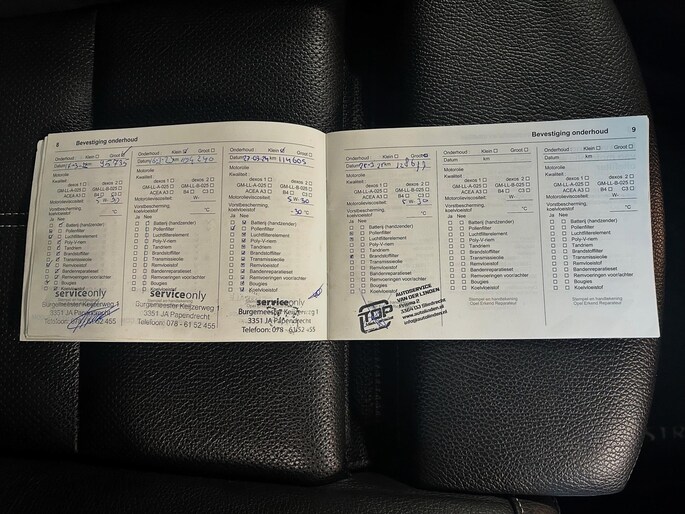 8 Bevestiging onderhoud
Onderhoud : Klein Groot
Datum km 95735
Motorolie
Kwaliteit:
dexos 1 dexos 2
GM-LL-A-025 GM-LL-B-025
ACEA A3 B4 C3
Motorolieviscositeit 5 W-30
Vorstbescherming,
koelvloeistof °C
Ja Nee
Batterij (handzender)
Pollenfilter
Luchtfilterelement
Poly-V-riem
Tandriem
Brandstoffilter
Transmissieolie
Remvloeistof
Bandenreparatieset
Remvoeringen voor/achter
Bougies
Koelvloeistof
serviceonly
Burgemeester Keijzerweg 1
3351 JA Papendrecht
Telefoon: 078 - 61 52 455
Onderhoud : Klein Groot
Datum km
Motorolie
Kwaliteit:
dexos 1 dexos 2
GM-LL-A-025 GM-LL-B-025
ACEA A3 B4 C3
Motorolieviscositeit W-
Vorstbescherming,
koelvloeistof °C
Ja Nee
Batterij (handzender)
Pollenfilter
Luchtfilterelement
Poly-V-riem
Tandriem
Brandstoffilter
Transmissieolie
Remvloeistof
Bandenreparatieset
Remvoeringen voor/achter
Bougies
Koelvloeistof
serviceonly
Burgemeester Keijzerweg 1
3351 JA Papendrecht
Telefoon: 078 - 61 52 455
Onderhoud : Klein Groot
Datum 27-03-24 km 114605
Motorolie
Kwaliteit:
dexos 1 dexos 2
GM-LL-A-025 GM-LL-B-025
ACEA A3 B4 C3
Motorolieviscositeit 5 W-30
Vorstbescherming,
koelvloeistof -30 °C
Ja Nee
Batterij (handzender)
Pollenfilter
Luchtfilterelement
Poly-V-riem
Tandriem
Brandstoffilter
Transmissieolie
Remvloeistof
Bandenreparatieset
Remvoeringen voor/achter
Bougies
Koelvloeistof
serviceonly
Burgemeester Keijzerweg 1
3351 JA Papendrecht
Telefoon: 078 - 61 52 455
Bevestiging onderhoud 9
Onderhoud : Klein Groot
Datum km
Motorolie
Kwaliteit:
dexos 1 dexos 2
GM-LL-A-025 GM-LL-B-025
ACEA A3 B4 C3
Motorolieviscositeit 5 W-30
Vorstbescherming,
koelvloeistof °C
Ja Nee
Batterij (handzender)
Pollenfilter
Luchtfilterelement
Poly-V-riem
Tandriem
Brandstoffilter
Transmissieolie
Remvloeistof
Bandenreparatieset
Remvoeringen voor/achter
Bougies
Koelvloeistof
AUTOSERVICE
VAN DER LINDEN
3364 Sliedrecht
Onderhoud : Klein Groot
Datum km
Motorolie
Kwaliteit:
dexos 1 dexos 2
GM-LL-A-025 GM-LL-B-025
ACEA A3 B4 C3
Motorolieviscositeit W-
Vorstbescherming,
koelvloeistof °C
Ja Nee
Batterij (handzender)
Pollenfilter
Luchtfilterelement
Poly-V-riem
Tandriem
Brandstoffilter
Transmissieolie
Remvloeistof
Bandenreparatieset
Remvoeringen voor/achter
Bougies
Koelvloeistof
Stempel en handtekening
Opel Erkend Reparateur
Onderhoud : Klein Groot
Datum km
Motorolie
Kwaliteit:
dexos 1 dexos 2
GM-LL-A-025 GM-LL-B-025
ACEA A3 B4 C3
Motorolieviscositeit W-
Vorstbescherming,
koelvloeistof °C
Ja Nee
Batterij (handzender)
Pollenfilter
Luchtfilterelement
Poly-V-riem
Tandriem
Brandstoffilter
Transmissieolie
Remvloeistof
Bandenreparatieset
Remvoeringen voor/achter
Bougies
Koelvloeistof
Stempel en handtekening
Opel Erkend Reparateur